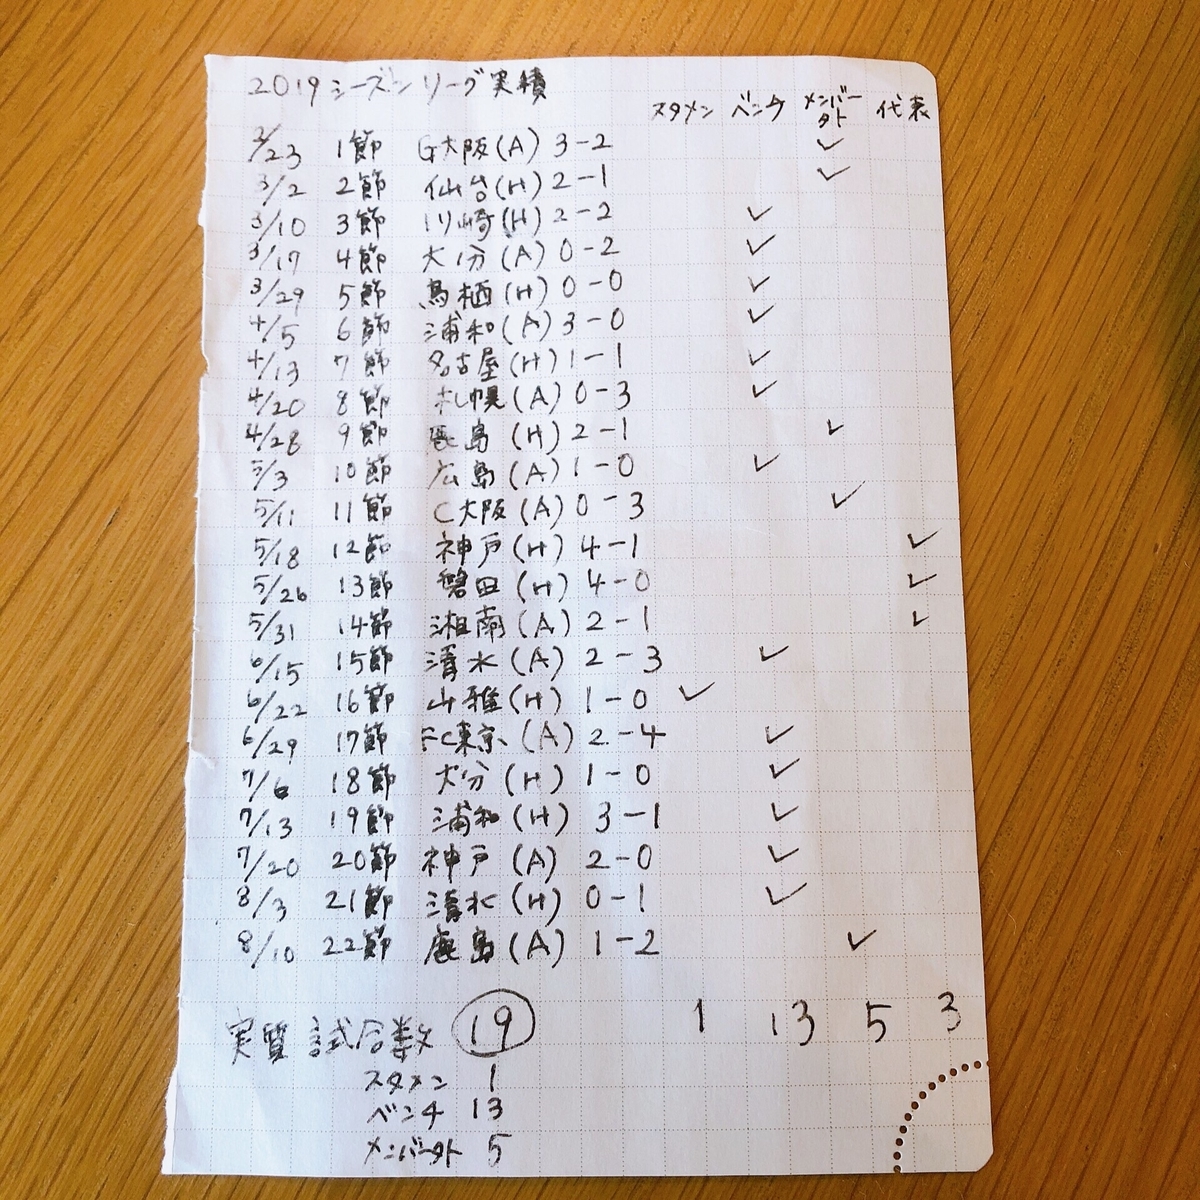 2019シーズンリーグ実績
スタメン ベンチ メンバー外 代表
2/23 1節 G大阪(A) 3-2 ✓
3/2 2節 仙台(H) 2-1 ✓
3/10 3節 川崎(H) 2-2 ✓
3/17 4節 大分(A) 0-2 ✓
3/29 5節 鳥栖(H) 0-0 ✓
4/5 6節 浦和(A) 3-0 ✓
4/13 7節 名古屋(H) 1-1 ✓
4/20 8節 札幌(A) 0-3 ✓
4/28 9節 鹿島(H) 2-1 ✓
5/3 10節 広島(A) 1-0 ✓
5/11 11節 C大阪(A) 0-3 ✓
5/18 12節 神戸(H) 4-1 ✓
5/26 13節 磐田(H) 4-0 ✓
5/31 14節 湘南(A) 2-1 ✓
6/15 15節 清水(A) 2-3 ✓
6/22 16節 山雅(H) 1-0 ✓
6/29 17節 FC東京(A) 2-4 ✓
7/6 18節 大分(H) 1-0 ✓
7/13 19節 浦和(H) 3-1 ✓
7/20 20節 神戸(A) 2-0 ✓
8/3 21節 清水(H) 0-1 ✓
8/10 22節 鹿島(A) 1-2 ✓
1 13 5 3
実質試合数 19
スタメン 1
ベンチ 13
メンバー外 5